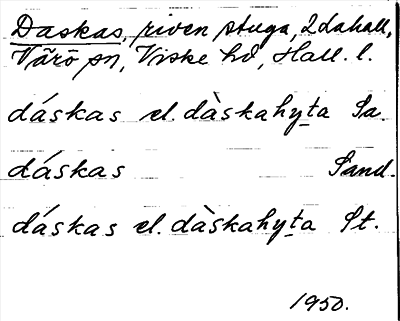 Daskas, riven stuga, 2dahall,
Värö sn, Viske hd, Hall. l.
dáskas el. dàskahyta Sa.
dáskas Sand.
dáskas el. dàskahyta St.
1950.